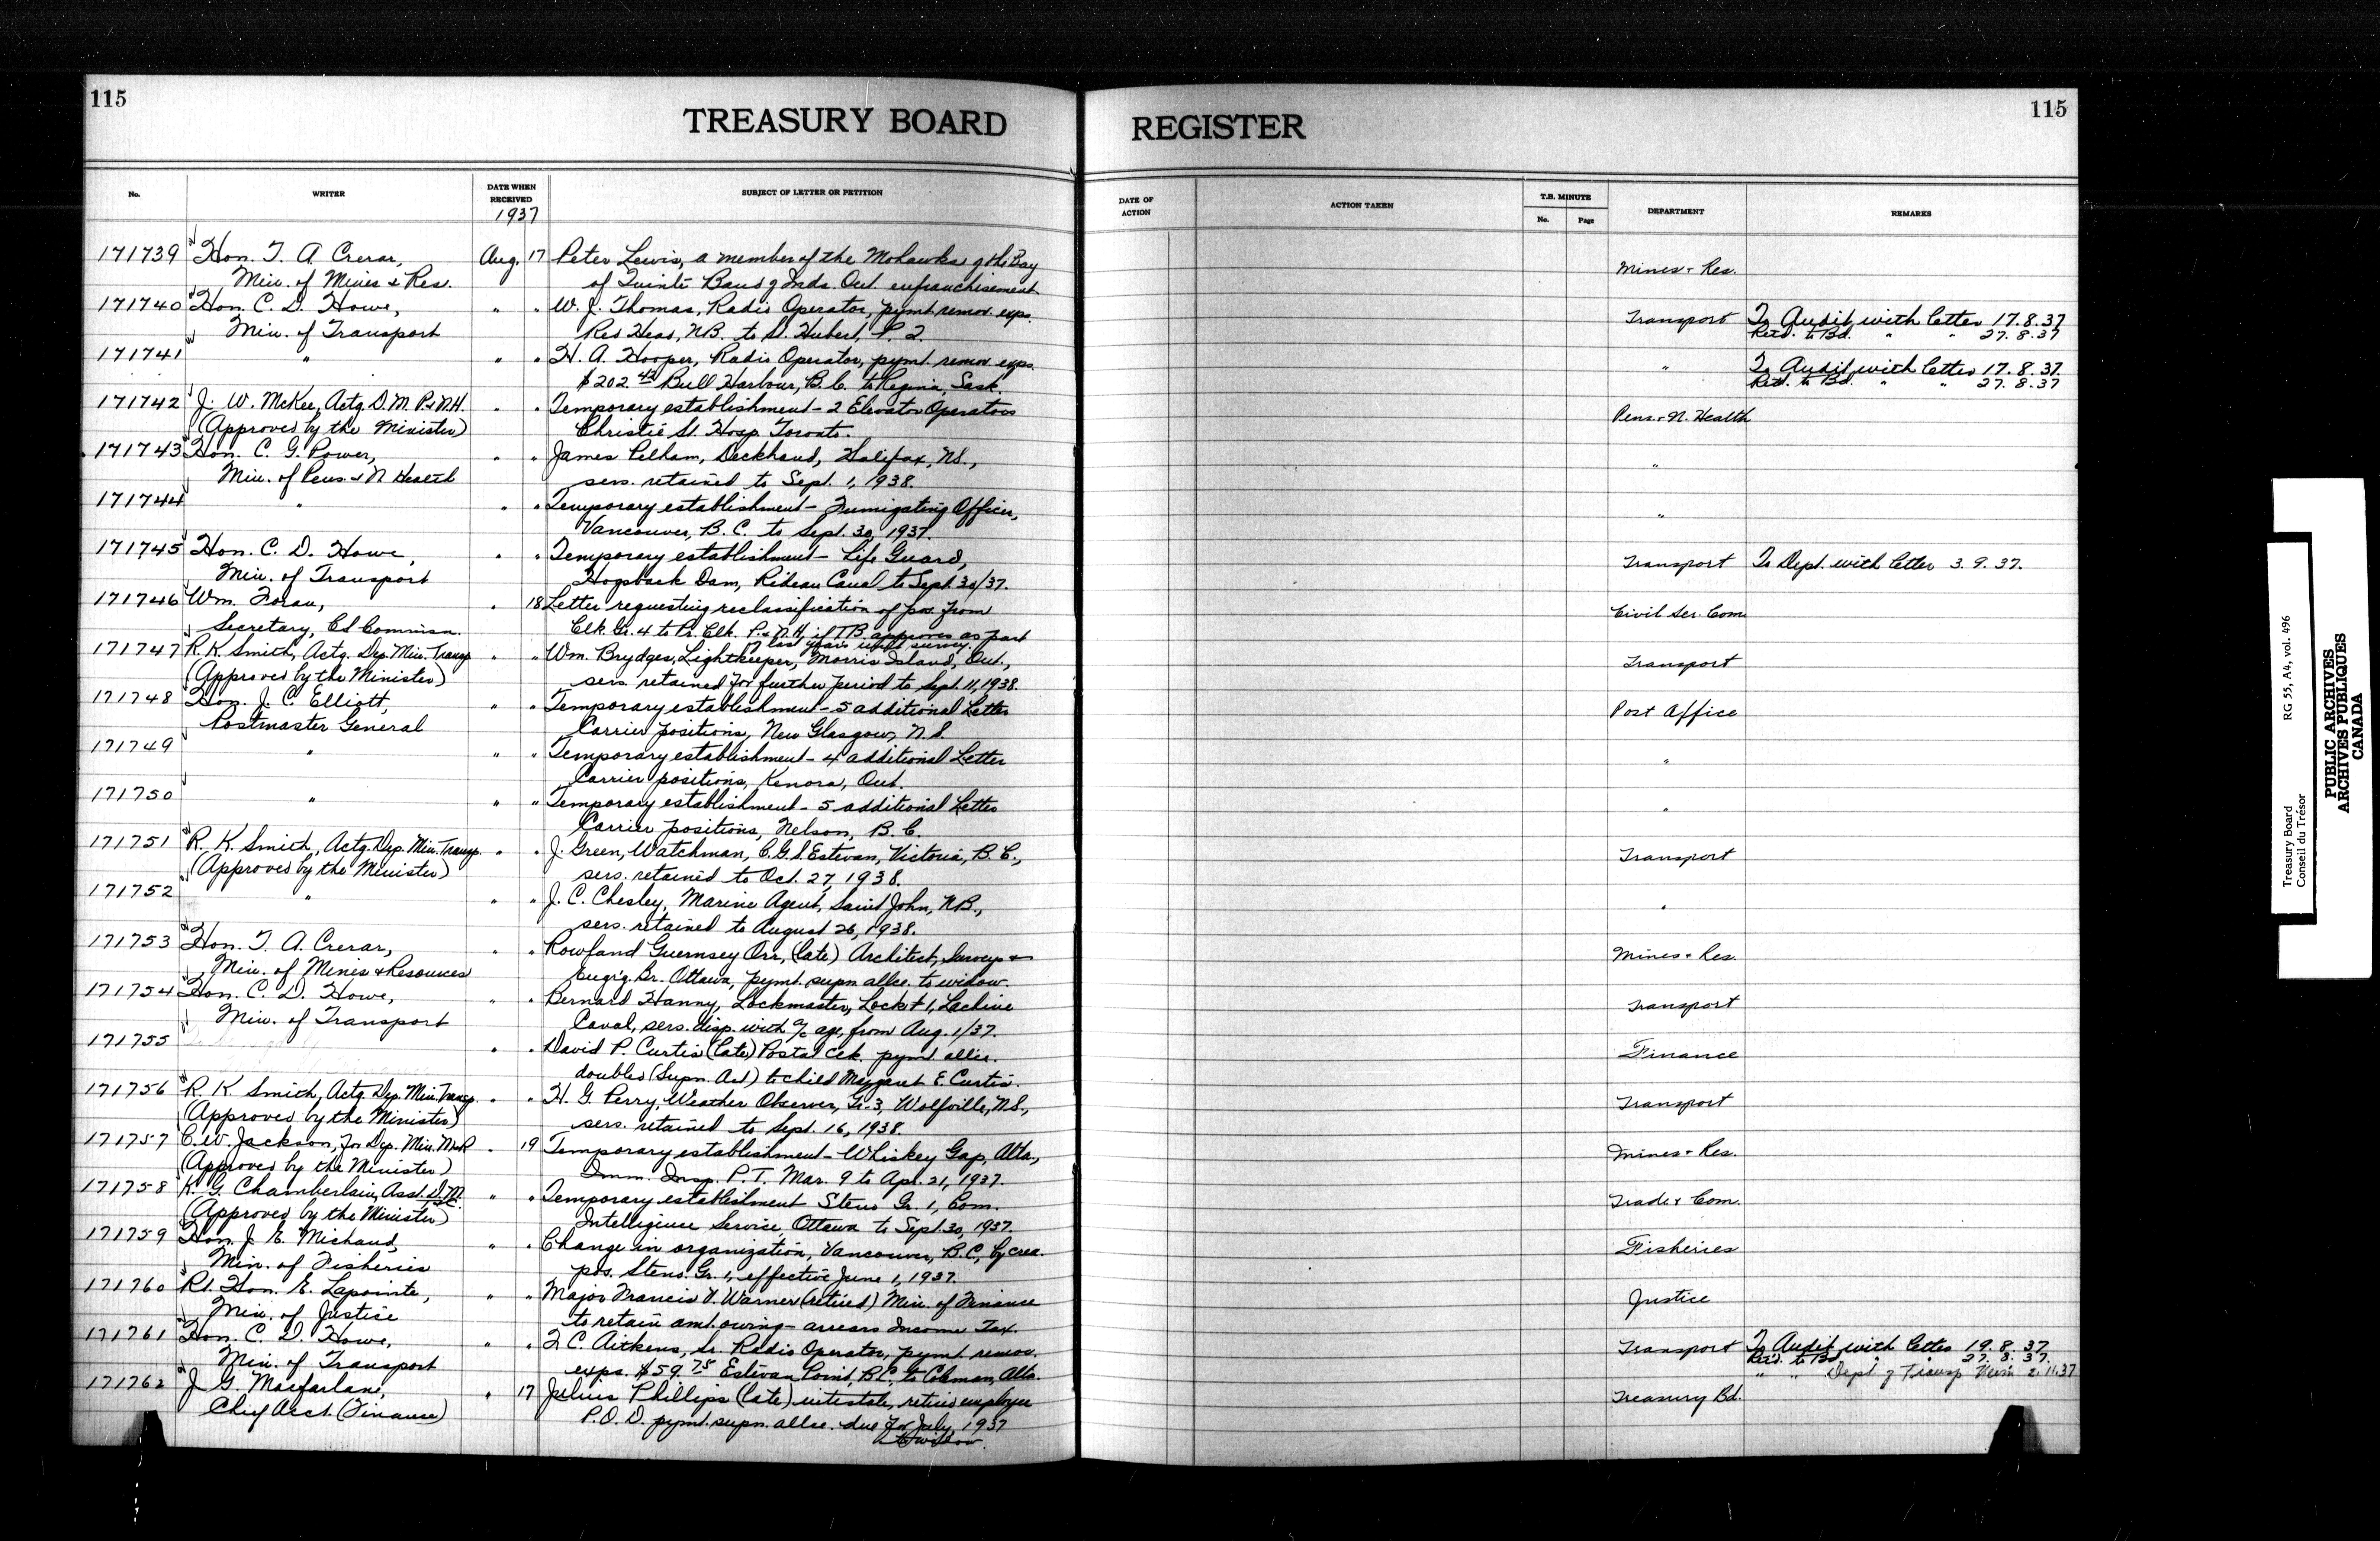 115
TREASURY BOARD REGISTER
115
No. WRITER DATE WHEN RECEIVED SUBJECT OF LETTER OR PETITION DATE OF ACTION ACTION TAKEN T.B. MINUTE No. Page DEPARTMENT REMARKS
1937
171739 Hon. T. A. Crerar, Aug. 17 Peter Lewis, a member of the Mohawks of the Bay Mines & Res.
Min. of Mines & Res. of Quinté Band of Inds. Ont. enfranchisement
171740 Hon. C. D. Howe, " " W. J. Thomas, Radio Operator, pymt. remov. exps. Transport To Audit with letter 17.8.37
Min. of Transport Red Head, N.B. to St. Hubert, P.Q. Retd. to Bd. " " 27.8.37
171741 " " " H. A. Hooper, Radio Operator, pymt. remov. exps. " To Audit with letter 17.8.37
$202.42 Bull Harbour, B.C. to Regina, Sask. Retd. to Bd. " " 27.8.37
171742 J. W. McKee, Actg. D.M. P.& N.H. " " Temporary establishment - 2 Elevator Operators Pens. & N. Health
(Approved by the Minister) Christie St. Hosp. Toronto.
171743 Hon. C. G. Power, " " James Pelham, Deckhand, Halifax, N.S., "
Min. of Pens. & N Health sers. retained to Sept. 1, 1938.
171744 " " " Temporary establishment - Fumigating Officer, "
Vancouver, B.C. to Sept. 30, 1937.
171745 Hon. C. D. Howe, " " Temporary establishment - Life Guard, Transport To Dept. with letter 3.9.37.
Min. of Transport Hogsback Dam, Rideau Canal to Sept. 30/37.
171746 Wm. Foran, " 18 Letter requesting reclassification of pos. from Civil Ser. Com.
Secretary, C.S. Commisn. Clk. Gr. 4 to Pr. Clk. P.& N.H. if T.B. approves as part
of last year's survey.
171747 R. K. Smith, Actg. Dep. Min. Transp. " " Wm. Brydges, Lightkeeper, Morris Island, Ont., Transport
(Approved by the Minister) sers. retained for further period to Sept. 11, 1938.
171748 Hon. J. C. Elliott, " " Temporary establishment - 5 additional Letter Post Office
Postmaster General Carrier positions, New Glasgow, N.S.
171749 " " " Temporary establishment - 4 additional Letter "
Carrier positions, Kenora, Ont.
171750 " " " Temporary establishment - 5 additional Letter "
Carrier positions, Nelson, B.C.
171751 R. K. Smith, Actg. Dep. Min. Transp. " " J. Green, Watchman, C.G.S. Estevan, Victoria, B.C., Transport
(Approved by the Minister) sers. retained to Oct. 27, 1938.
171752 " " " J. C. Chesley, Marine Agent, Saint John, N.B., "
sers. retained to August 26, 1938.
171753 Hon. T. A. Crerar, " " Rowland Guernsey Orr, (late) Architect, Surveys & Mines & Res.
Min. of Mines & Resources Engr'g. Br. Ottawa, pymt. supn. allce. to widow.
171754 Hon. C. D. Howe, " " Bernard Hanny, Lockmaster, Lock #1, Lachine Transport
Min. of Transport Canal, sers. disp. with a/c age, from Aug. 1/37.
171755 " " David P. Curtis (late) Postal Clk. pymt. allce. Finance
doubled (Supn. Act) to child Margaret E. Curtis.
171756 R. K. Smith, Actg. Dep. Min. Transp. " " H. G. Perry, Weather Observer, Gr. 3, Wolfville, N.S., Transport
(Approved by the Minister) sers. retained to Sept. 16, 1938.
171757 C. W. Jackson, for Dep. Min. M&R " 19 Temporary establishment - Whiskey Gap, Alta., Mines & Res.
(Approved by the Minister) Imm. Insp. P.T. Mar. 9 to Apr. 21, 1937.
171758 K. G. Chamberlain, Asst. D.M. " " Temporary establishment Steno Gr. 1, Com. Trade & Com.
(Approved by the Minister) Intelligence Service, Ottawa to Sept. 30, 1937.
171759 Hon. J. E. Michaud, " " Change in organization, Vancouver, B.C., by crea. Fisheries
Min. of Fisheries pos. Steno. Gr. 1, effective June 1, 1937.
171760 Rt. Hon. E. Lapointe, " " Major Francis V. Warner (retired) Min. of Finance Justice
Min. of Justice to retain amt. owing - arrears Income Tax.
171761 Hon. C. D. Howe, " " F. C. Aitkens, Sr. Radio Operator, pymt. remov. Transport To Audit with letter 19.8.37
Min. of Transport exps. $59.75 Estevan Point, B.C. to Coleman, Alta. Retd. to Bd. " " 27.8.37.
" " Dept. of Transp. 2.11.37
171762 J. G. Macfarlane, " 17 Julius Phillips (late) intestate, retired employee Treasury Bd.
Chief Acct. (Finance) P.O.D. pymt. supn. allce. due for July, 1937
to widow.
Treasury Board RG 55, A4, vol. 496
Conseil du Trésor
PUBLIC ARCHIVES
ARCHIVES PUBLIQUES
CANADA